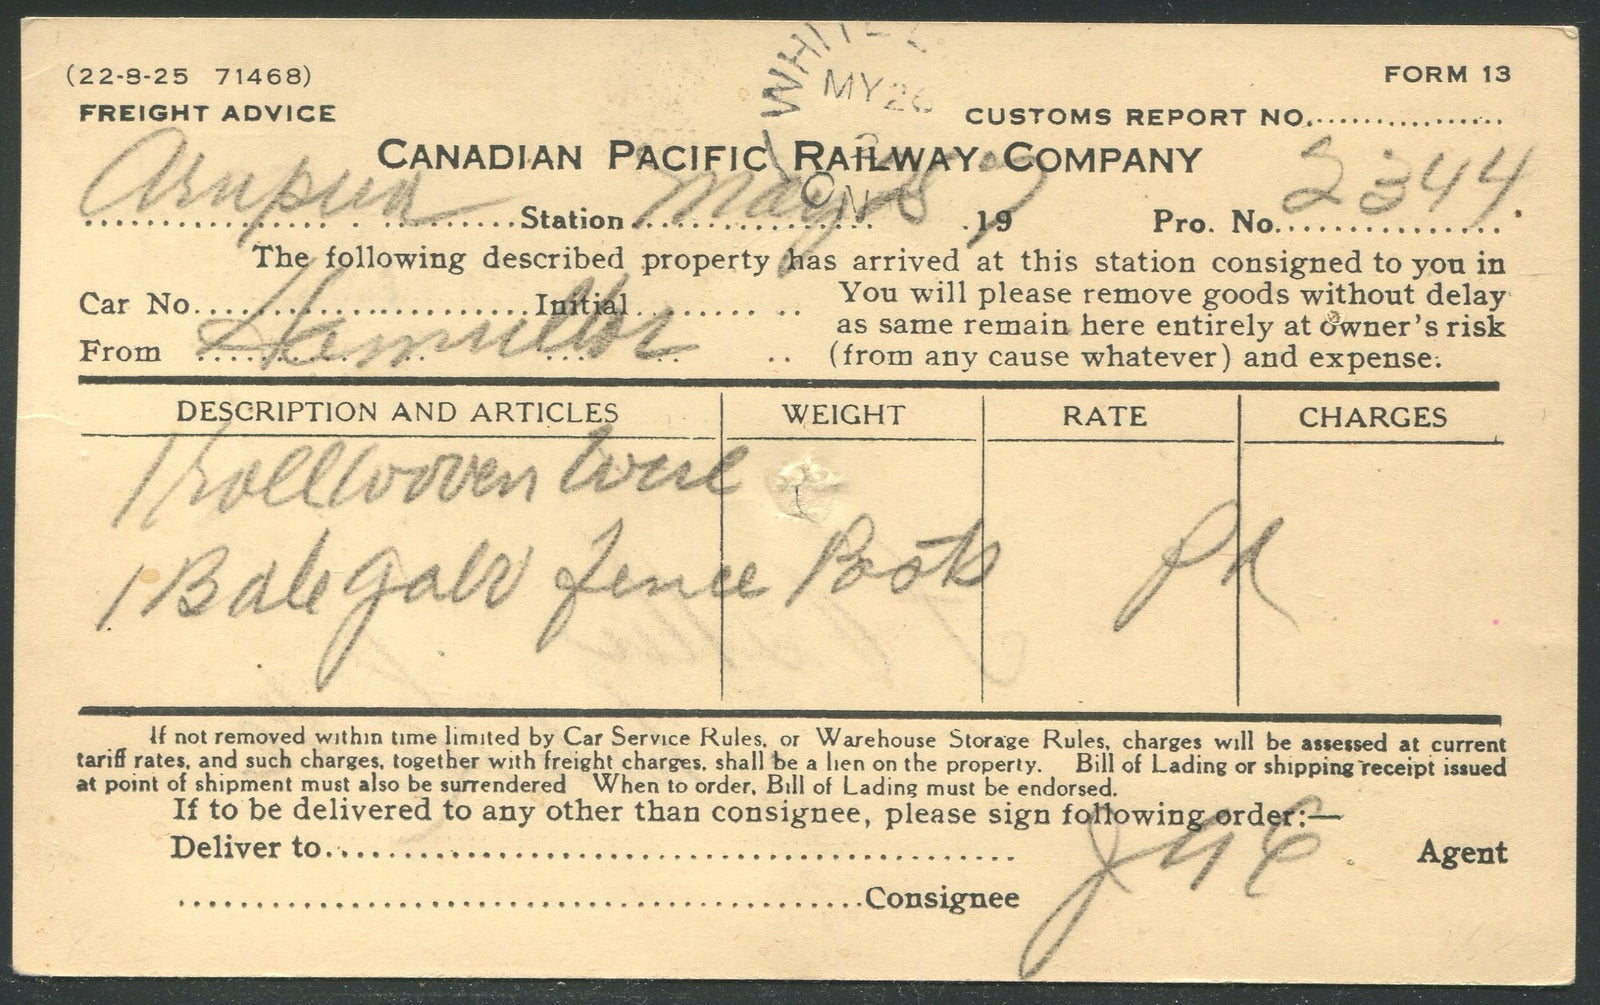 (22-8-25 71468)
FORM 13
WHITE
MY 26
ON
FREIGHT ADVICE
CUSTOMS REPORT NO.
CANADIAN PACIFIC RAILWAY COMPANY
Station May 19 Pro. No. 2344
The following described property has arrived at this station consigned to you in
Car No. Initial
You will please remove goods without delay
as same remain here entirely at owner's risk
From Hamilton
(from any cause whatever) and expense.
DESCRIPTION AND ARTICLES WEIGHT RATE CHARGES
1 roll wooven wire
1 Bale galv fence Posts
If not removed within time limited by Car Service Rules, or Warehouse Storage Rules, charges will be assessed at current
tariff rates, and such charges, together with freight charges, shall be a lien on the property. Bill of Lading or shipping receipt issued
at point of shipment must also be surrendered When to order, Bill of Lading must be endorsed.
If to be delivered to any other than consignee, please sign following order:—
Deliver to
Agent
Consignee